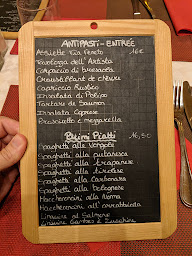 ANTIPASTI - ENTREE
Assiette Via Veneto 16€
Tavolozza dell'Artista
Carpaccio di bresaola
Croustillant de chèvre
Capriccio Rustico
Insalata di Polipo
Tartare de Saumon
Insalata Caprese
Prosciutto e mozzarella
Primi Piatti 16,50
Spaghetti alle Vongole
Spaghetti alla putanesca
Spaghetti alla trapanese
Spaghetti alla tirolese
Spaghetti alla Carbonara
Spaghetti alla bolognese
Maccheroncini alla Norma
Maccheroncini all'arrabbiata
Linguine al Salmone
Linguine Gambas e Zucchine